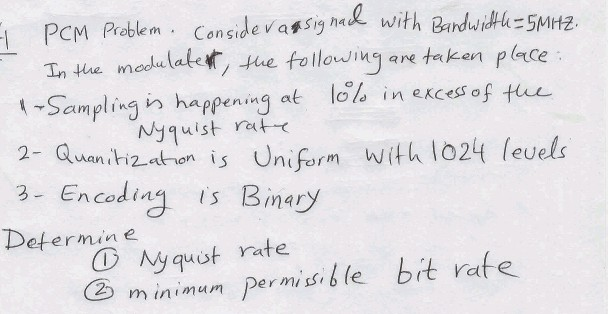 1 PCM Problem. Consider a signal with Bandwidth = 5MHZ.
In the modulater, the following are taken place:
1- Sampling is happening at 10% in excess of the
Nyquist rate
2- Quanitization is Uniform with 1024 levels
3- Encoding is Binary
Determine
① Nyquist rate
② minimum permissible bit rate